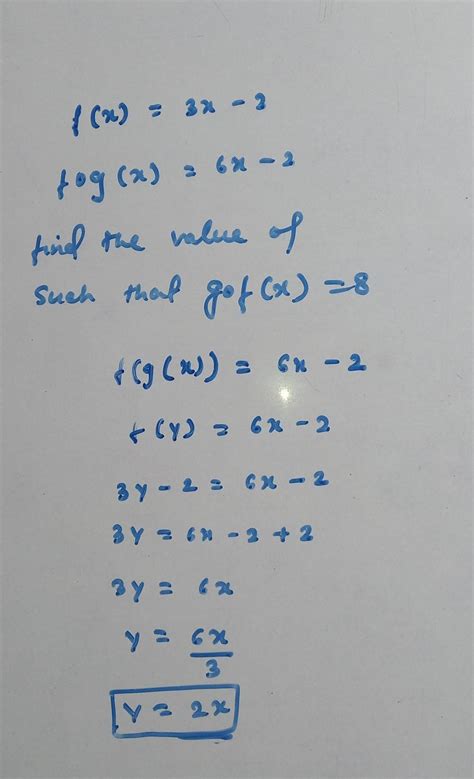 f(x) = 3x - 2
fog(x) = 6x - 2
find the value of
such that gof(x) = 8
f(g(x)) = 6x - 2
f(y) = 6x - 2
3y - 2 = 6x - 2
3y = 6x - 2 + 2
3y = 6x
y = 6x/3
y = 2x